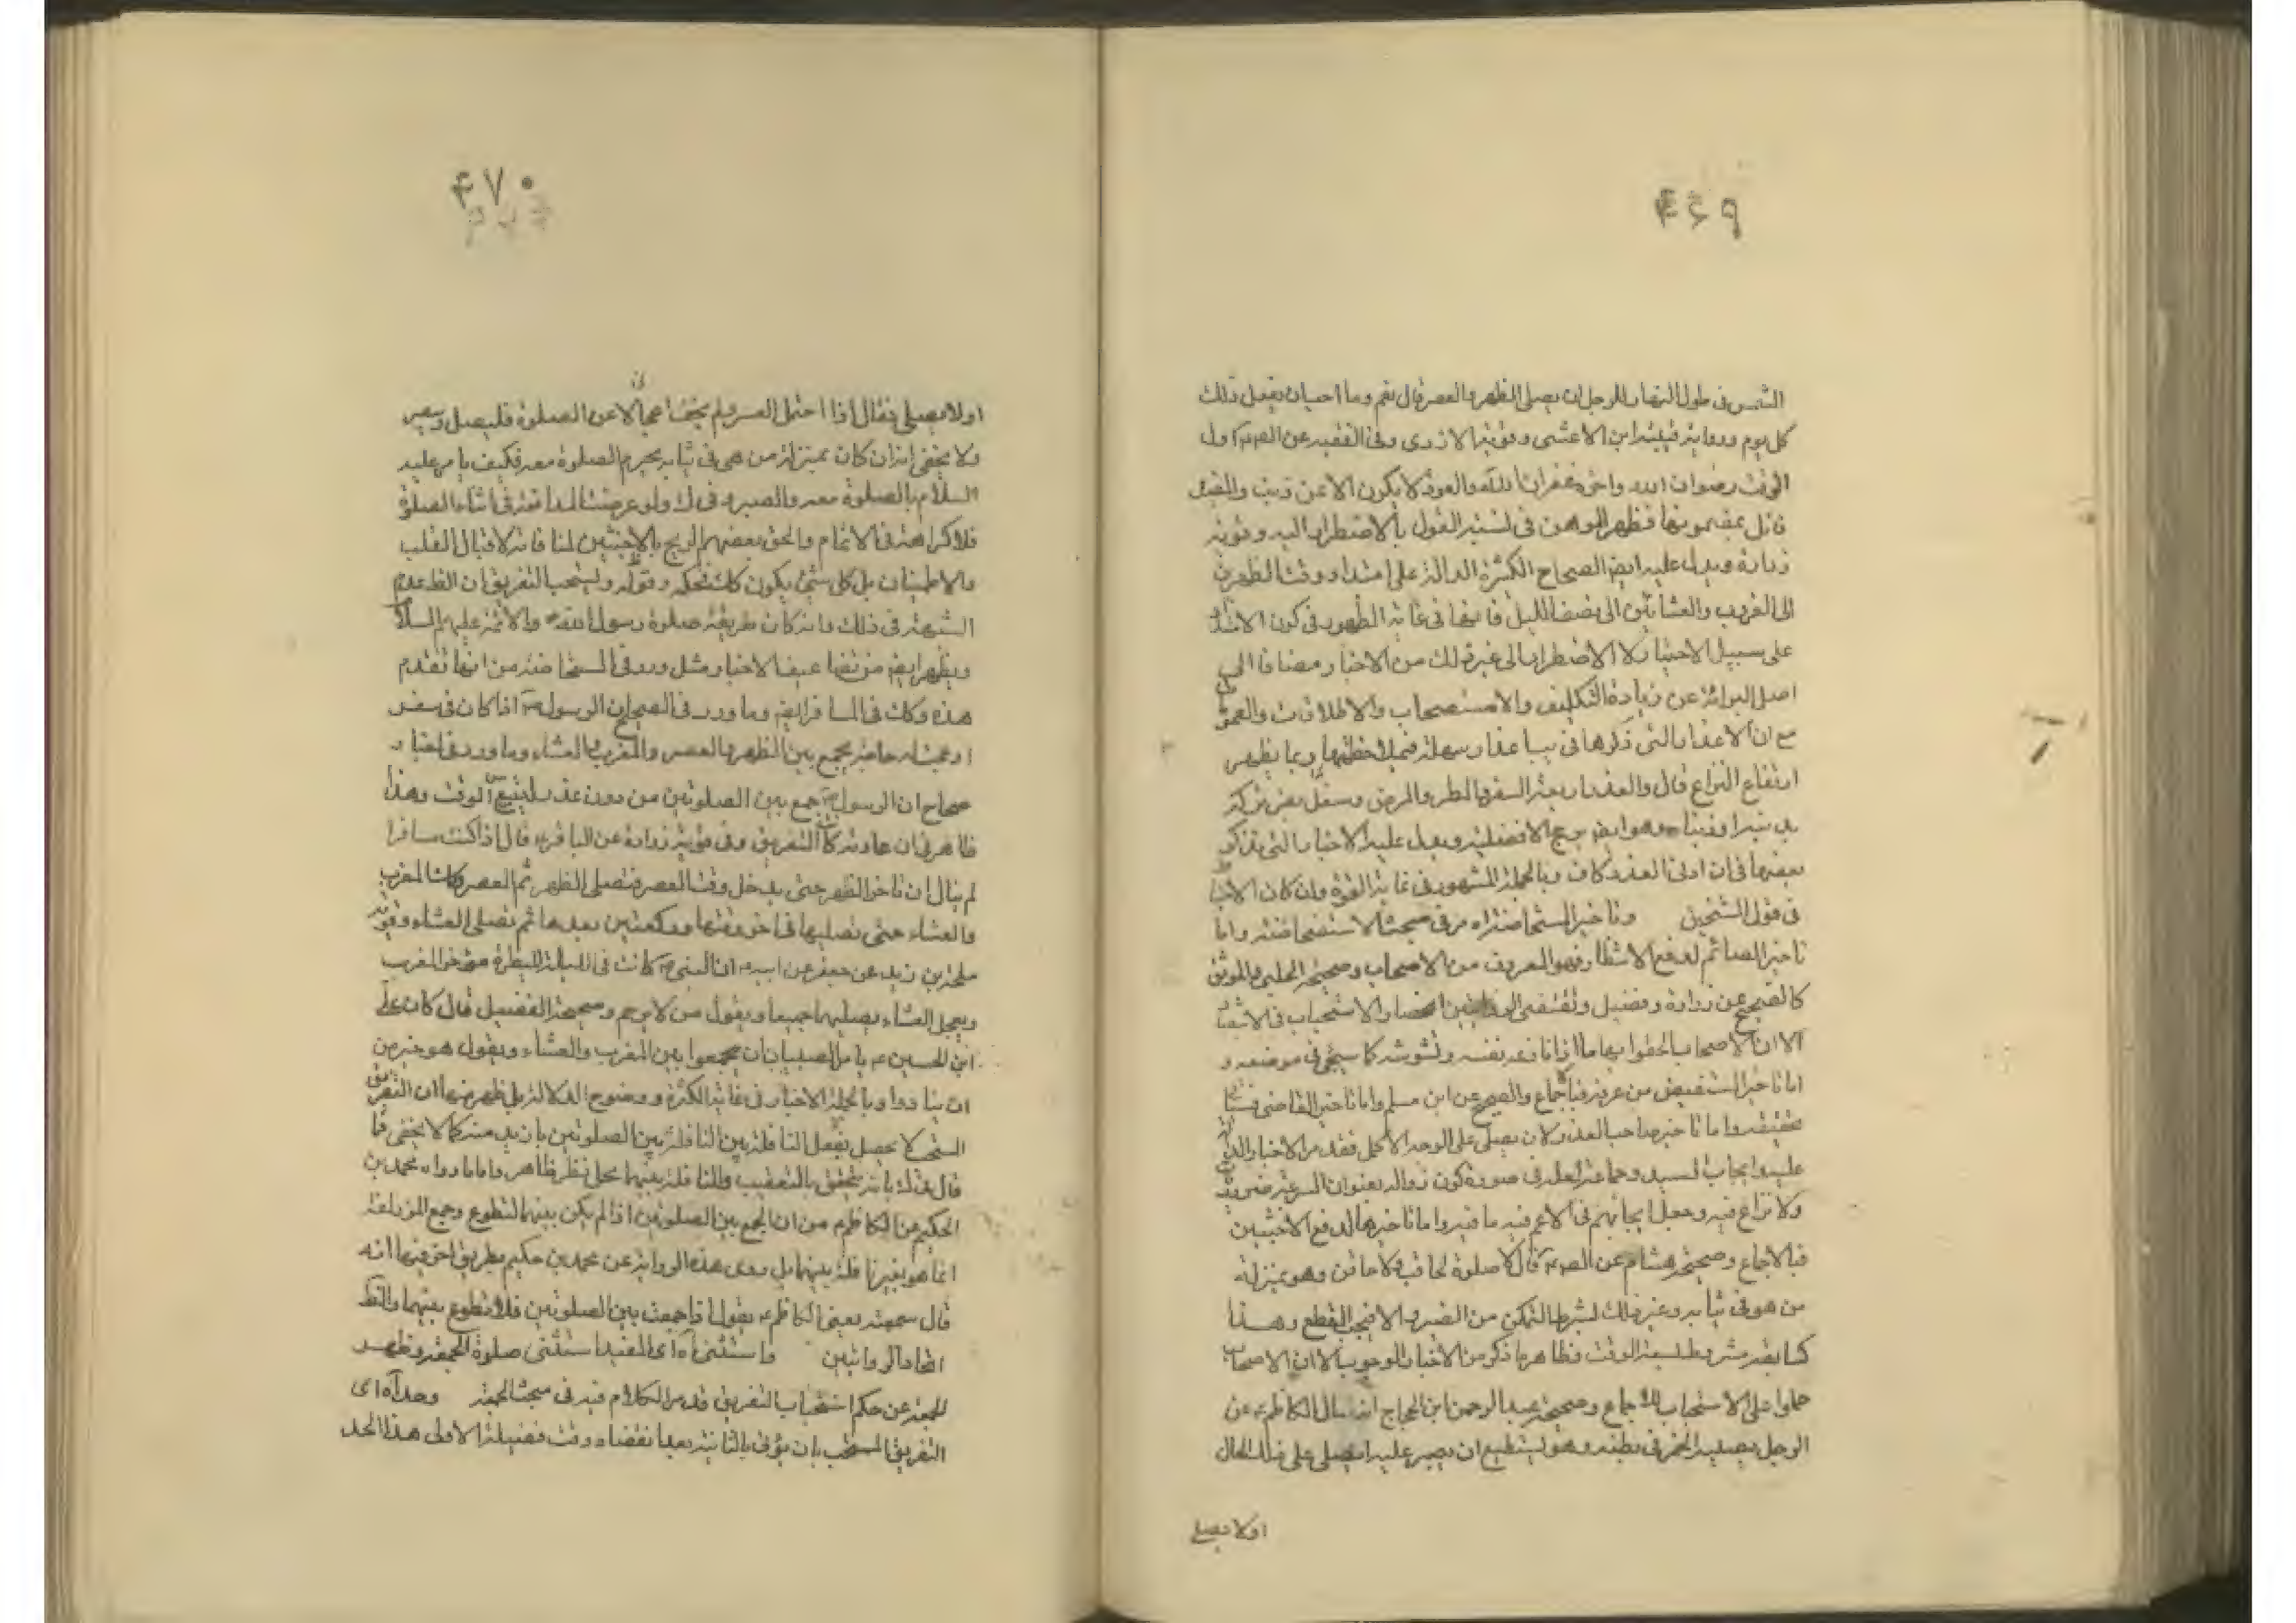 ۴۶۹
الشمس فى طول النهار للرجل ان يصلى الظهر والعصر قال نعم وما احب ان يفعل ذلك
كل يوم ورواية ابن الاعشى وموثقة الازدى وفى الفقيه عن الصم اول
الوقت رضوان الله واخره غفران الله والعفو لا يكون الا عن ذنب والمفيد
قائل بمضمونها فظهر الوهن فى نسبة القول بالاضطرار اليه وقوته
زيادة ويدل عليه ايضا الصحاح الكثيرة الدالة على امتداد وقت الظهرين
الى الغروب والعشائين الى نصف الليل فانها فى غاية الظهور فى كون الامتداد
على سبيل الاختيار لا الاضطرار الى غير ذلك من الاخبار مضافا الى
اصل البرائة عن زيادة التكليف والاستصحاب والاطلاقات والعموم
مع ان الاعذار التى ذكرها فى يب اعذار سهلة فبملاحظتها ربما يظهر
ارتفاع النزاع قال والعذر اربعة السفر والمطر والمرض وشغل يضر تركه
بدينه او دنياه وهو ايضا يرجح الافضلية ويدل عليه الاخبار التى تذكر
بعضها فى ان ادنى العذر كاف وبالجملة المشهور فى غاية القوة وان كان الاحتياط
فى قول الشيخين وتاخير المستحاضة اه مر فى مبحث الاستحاضة واما
تاخير الصائم لدفع الانتظار فهو المعروف من الاصحاب وصحيحة الحلبى والموثق
كالصحيح عن زرارة وفضيل وتقتضى انحصار الاستحباب فى الانتظار
الا ان الاصحاب الحقوا بهاما اذا نازعه نفسه وتشوشه كما سيجئ فى موضعه و
اما تاخير المستفيض من عرفة فبالاجماع والصحيح عن ابن مسلم واما تاخير القاضى فسيأتى
تحقيقه واما تاخير صاحب العذر لان يصلى على الوجه الاكمل فقد مر الاخبار الدالة
عليه وايجاب السيد وجماعة العلة فى صورة كون زواله بعنوان السرعة ضرورى
ولا نزاع فيه وجعل ايجابهم فى الاعم فيه ما فيه واما تاخيرها لدفع الاخبثين
فبالاجماع وصحيحة هشام عن الصم قال لا صلوة لحاقب ولا حاقن وهو بمنزلة
من هو فى ثيابه وغير ذلك بشرط التمكن من الصبر والا فيجب القطع وهذا
كسابقه مشروط بسعة الوقت فظاهر ما ذكر من الاخبار الوجوب الا ان الاصحاب
حملوا على الاستحباب للاجماع وصحيحة عبد الرحمن ابن الحجاج انه سال الكاظم عن
الرجل يصيبه الغمز فى بطنه وهو يستطيع ان يصبر عليه ايصلى على تلك الحال
اولا يصلى
۴۷۰
اولا يصلى فقال اذا احتمل الصبر ولم يخف اعجالا عن الصلوة فليصل وليصبر
ولا يخفى انه ان كان بمنزلة من هى فى ثيابه يحرم الصلوة معه فكيف يامر عليه
السلام بالصلوة معه والصبر وفى ك ولو عرضت المدافعة فى اثناء الصلوة
فلا كراهة فى الاتمام والحق بعضهم الريح بالاخبثين لمنافاته لاقبال القلب
والاطمينان بل كل شئ يكون كك فحكمه وقوله ويستحب التفريق ان القطع عدم
الشبهة فى ذلك وانه كان طريقة صلوة رسول الله ص والائمة عليهم السلام
ويظهر ايضا من تضاعيف الاخبار مثل ورد فى المستحاضة من انها تقدم
هذه وكك فى المسافر ايضا وما ورد فى الصحيح ان الرسول ص اذا كان فى سفر
او عجلت به حاجة يجمع بين الظهر والعصر والمغرب والعشاء وما ورد فى اخبار
صحاح ان الرسول ص جمع بين الصلوتين من دون عذر ليتسع الوقت وهذا
ظاهر فى ان عادته كان التفريق وفى موثقة زرارة عن الباقر ع قال اذا كنت مسافرا
لم تبال ان تاخر الظهر حتى يدخل وقت العصر فتصلى الظهر ثم العصر وكك المغرب
والعشاء حتى تصليها فى اخر وقتها وركعتين بعدها ثم تصلى العشاء وقوية
طلحة بن زيد عن جعفر عن ابيه ان النبى ص كانت فى الليلة المطيرة يؤخر المغرب
ويعجل العشاء يصليهما جميعا ويقول من لا يرحم وصحيحة الفضيل قال كان على
ابن الحسين ع يامر الصبيان ان يجمعوا بين المغرب والعشاء ويقول هو خير من
ان يناموا وبالجملة الاخبار فى غاية الكثرة ووضوح الدلالة بل ظهر منها ان التفريق
المستحب لا يحصل بفعل النافلة بين الصلوتين بازيد منه كما لا يخفى فما
قال فى ك بانه يتحقق بالتعقيب والنافلة بينهما محل نظر ظاهر واما ما رواه محمد بن
الحكيم عن الكاظم من ان الجمع بين الصلوتين اذا لم يكن بينهما تطوع وجمع المزدلفة
انما هو بغير نافلة بينهما بل روى هذه الرواية عن محمد بن حكيم بطريق اخر فيها انه
قال سمعته يعنى الكاظم ع يقول اذا جمعت بين الصلوتين فلا تطوع بينهما والظ
اتحاد الروايتين واستثنى اه اى المفيد استثنى صلوة الجمعة وظهر
الجمعة عن حكم استحباب التفريق وقد مر الكلام فيه فى مبحث الجمعة وحده اه اى
التفريق المستحب بان يؤتى بالثانية بعد انقضاء وقت فضيلة الاولى هذا الحد